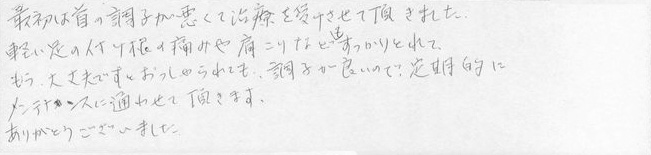 最初は首の調子が悪くて治療を受けさせて頂きました。
軽い足の付け根の痛みや肩こりなどもすっかりとれて、
もう、大丈夫ですとおっしゃられても、調子が良いので、定期的に
メンテナンスに通わせて頂きます。
ありがとうございました